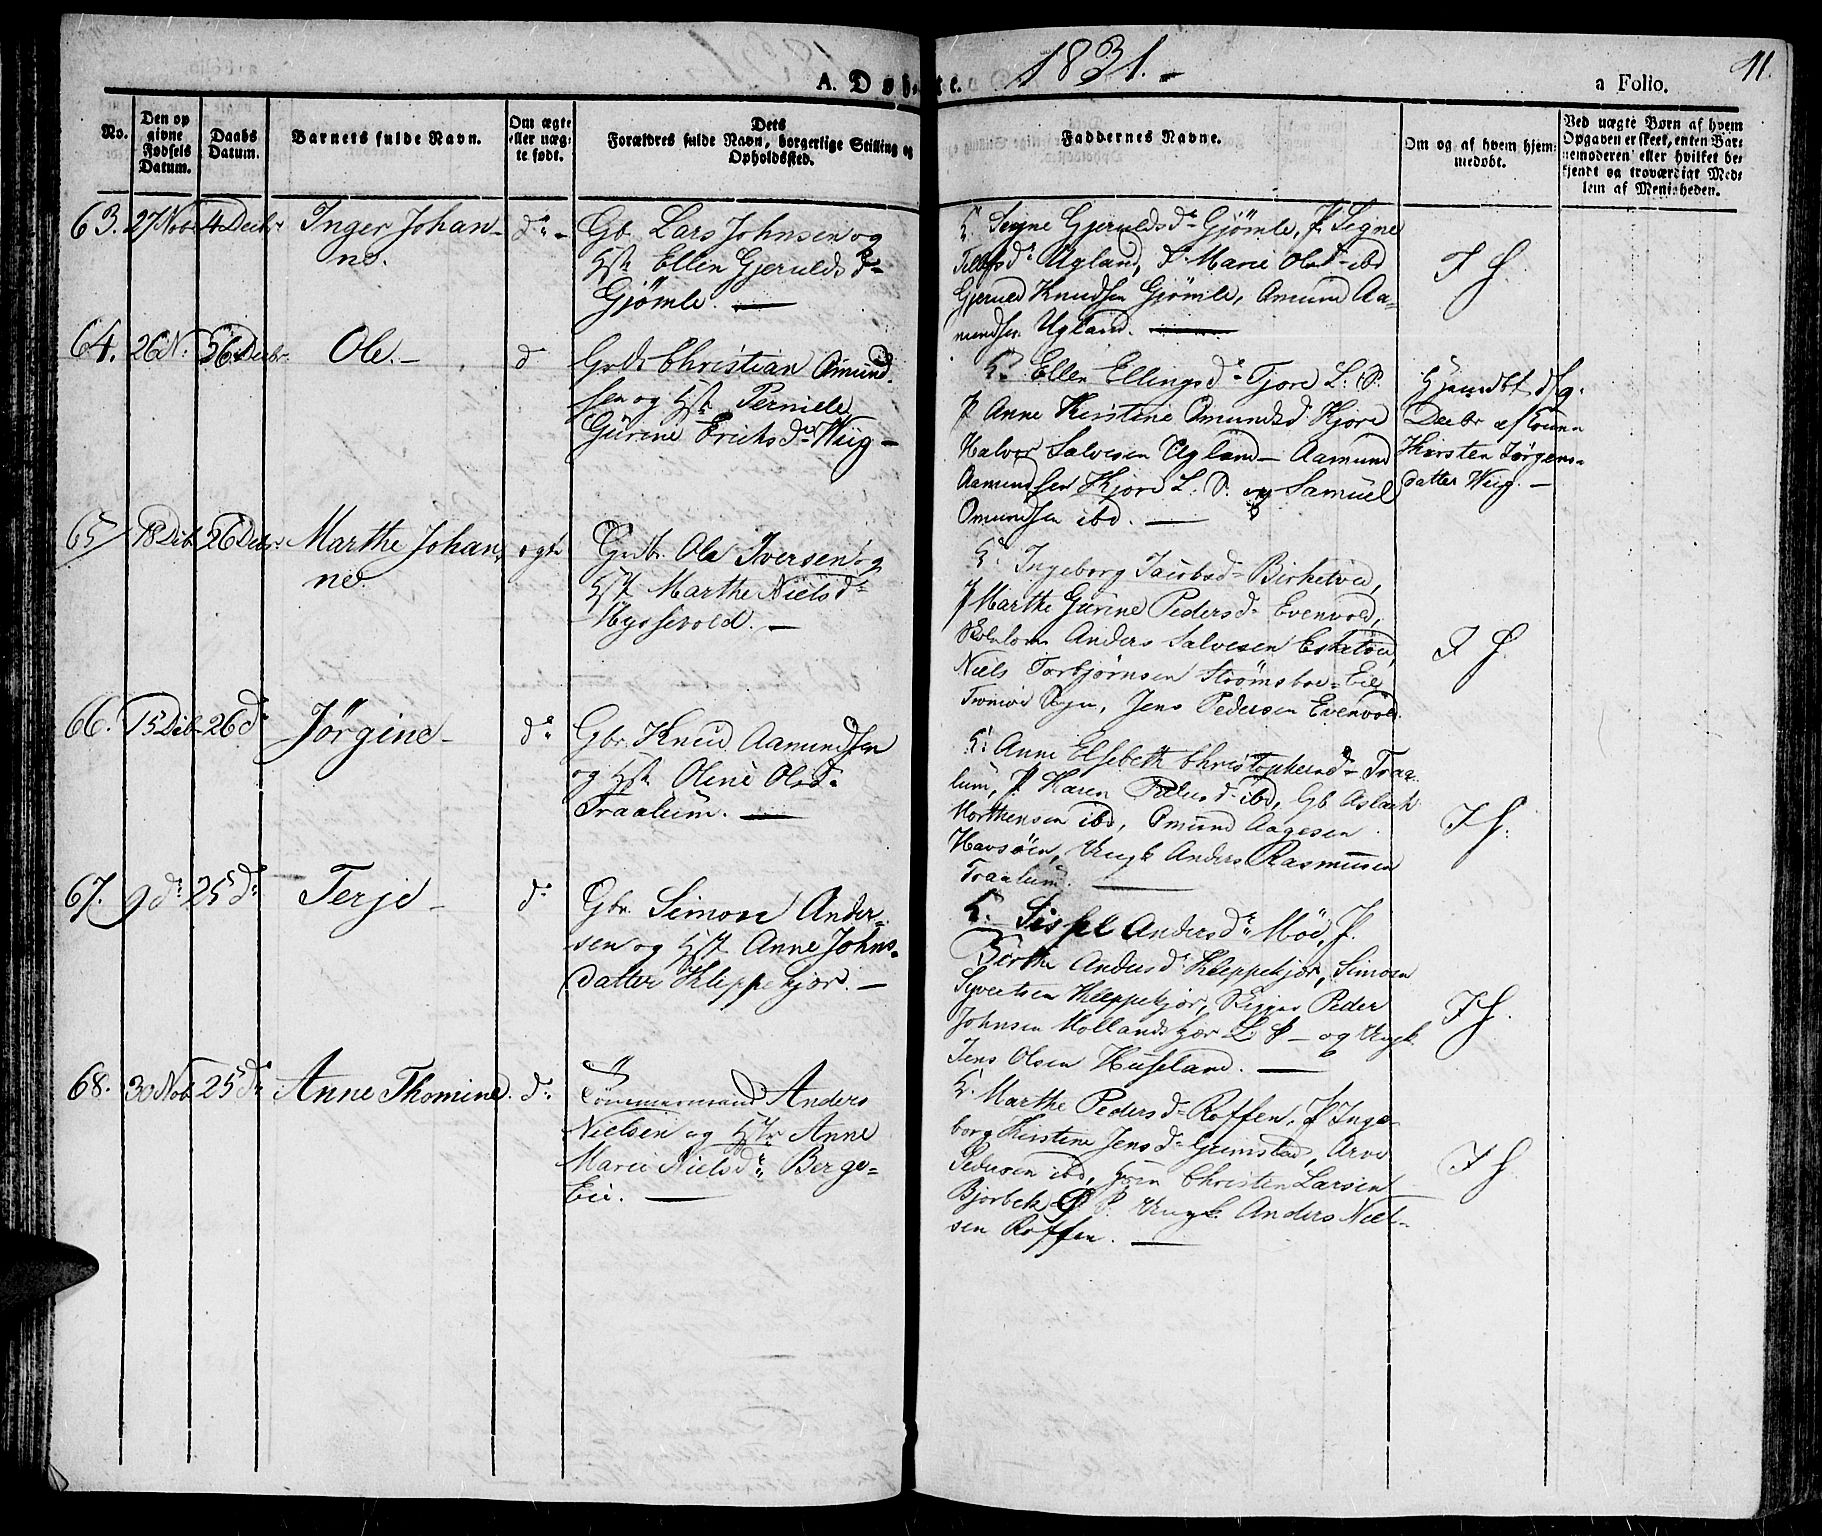 A. Døbte. 1831.-
a Folio.
11.
No.
Den op
givne
Fødsels
Datum.
Daabs
Datum.
Barnets fulde Navn.
Om ægte
eller uæg-
te født.
Dets
Forældres fulde Navn, borgerlige Stilling og
Opholdssted.
Faddernes Navne.
Om og af hvem hjem-
medøbt.
Ved uægte Børn af hvem
Opgaven er skeet, enten Bar-
nemoderen eller hvilket be-
kjendt og troværdigt Med-
lem af Menigheden.
63. 27 Nob 4 Decbr Inger Johan-
ne.
do -
Gb. Lars Johnsen og
Hst. Ellen Gjerulds d-
Gjömle. —
Signe Gjerulds d- Gjömle, P. Signe
Ugland, P. Marie Ols d- ibd
Gjeruld Knudsen Gjömle, Amund Aa-
mundsen Ugland. —
F H
64. 26 N. 26 Decbr. Ole. -
d
Christian Omund-
sen og Hst. Pernille
Gurine Erichs d. Wiig -
Ellen Ellings d- Fjore L. S.
P Anne Kirstine Omunds d. Kjore
Halvor Salvesen Ugland - Aamund
Aamundsen Kjore L. S. og Samuel
Omundsen ibd. —
Hjemdbt d. 9.
Decbr af
Kirsten Jørgens-
datter Wiig. -
65 18 Dcb 26 Decbr. Marthe Johan-
ne
ægte
Grdbr. Ole Iversen og
Hst Marthe Niels d-
Myssevold. -
Ingeborg Jacobs d- Birketved,
P Marthe Gurine Peders d- Evenvold,
Anders Salvesen
Niels Torbjørnsen Strömsboe-Eie
Jens Pedersen Evenvold.
F H.
66. 15 Dcb 26 d- Jørgine -
do
Gbr. Knud Aamundsen
og Hst. Olene Ols d-
Traalum. —
Anne Elsebeth Christophers d- Traa-
lum, P Karen Peders d- ibd, Gb Aslack
Morthensen ibd, Omund Aagesen
Havsöen, Ungk Anders Rasmusen
Traalum. —
F H.
67. 9 d- 25 d- Terje -
do
Gbr. Simon Ander-
sen og Hst. Anne Johns-
datter Kleppekjør. -
Sissel Anders d- Möe, P.
Birthe Anders d- Kleppekjør, Simon
Syvertsen Kleppekjør, Peder
Johnsen Hollandskjær L. S - og Ungk.
Jens Olsen Huseland. —
F H.
68. 30 Nob 25 d- Anne Thomine.
do
Tömmermand Anders
Nielsen og Hstr Anne
Marie Niels d- Berge-
Eie. —
Marthe Peders d- Roffen, P Inge-
borg Kirstine Jens d- Grimstad, Arve
Pedersen ibd, Christen Larsen
Bjorbek S. P. Ungk. Anders Niel-
sen Roffen. —
F H.